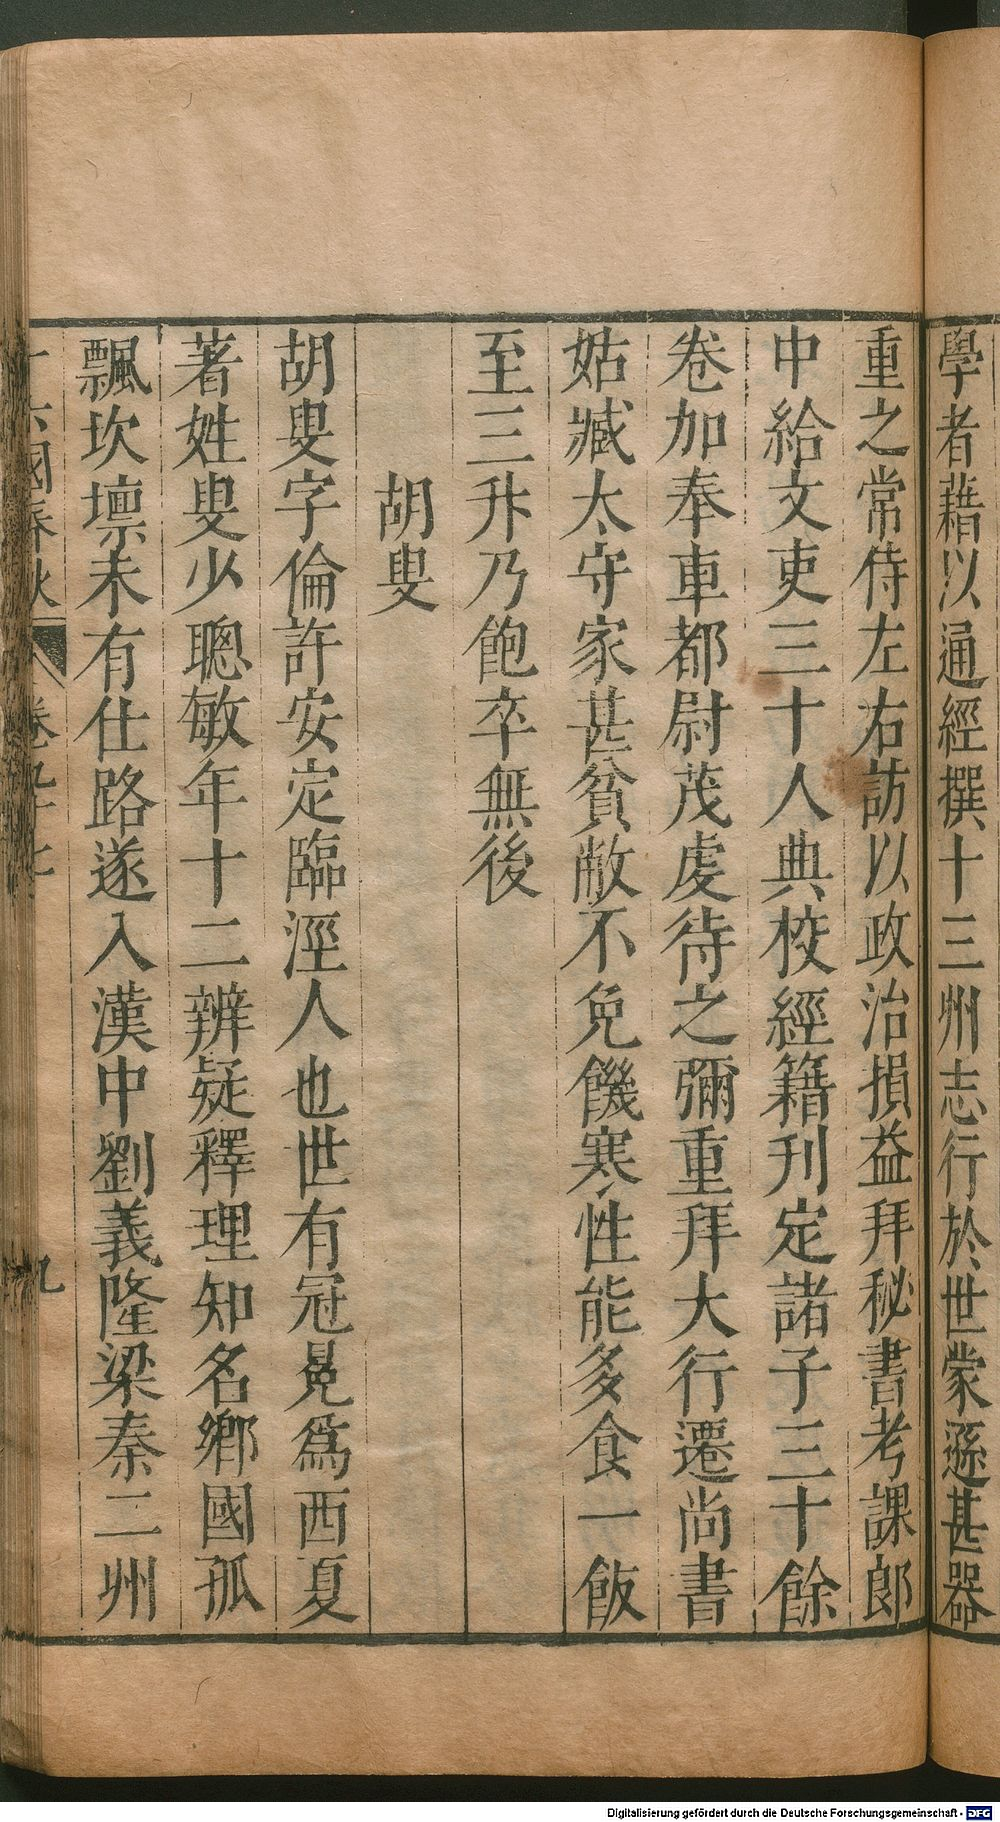 學者藉以通經撰十三州志行於世蒙遜甚器
重之常侍左右訪以政治損益拜秘書考課郎
中給文吏三十人典校經籍刊定諸子三十餘
卷加奉車都尉茂虔待之彌重拜大行遷尚書
姑臧太守家甚貧敝不免饑寒性能多食一飯
至三升乃飽卒無後
胡叟
胡叟字倫許安定臨涇人也世有冠冕爲西夏
著姓叟少聰敏年十二辨疑釋理知名鄉國孤
飄坎壈未有仕路遂入漢中劉義隆梁秦二州
十六國春秋
卷九十七
九
Digitalisierung gefördert durch die Deutsche Forschungsgemeinschaft - DFG